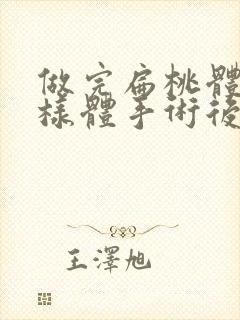 做完扁桃體
樣體手術後
王澤旭